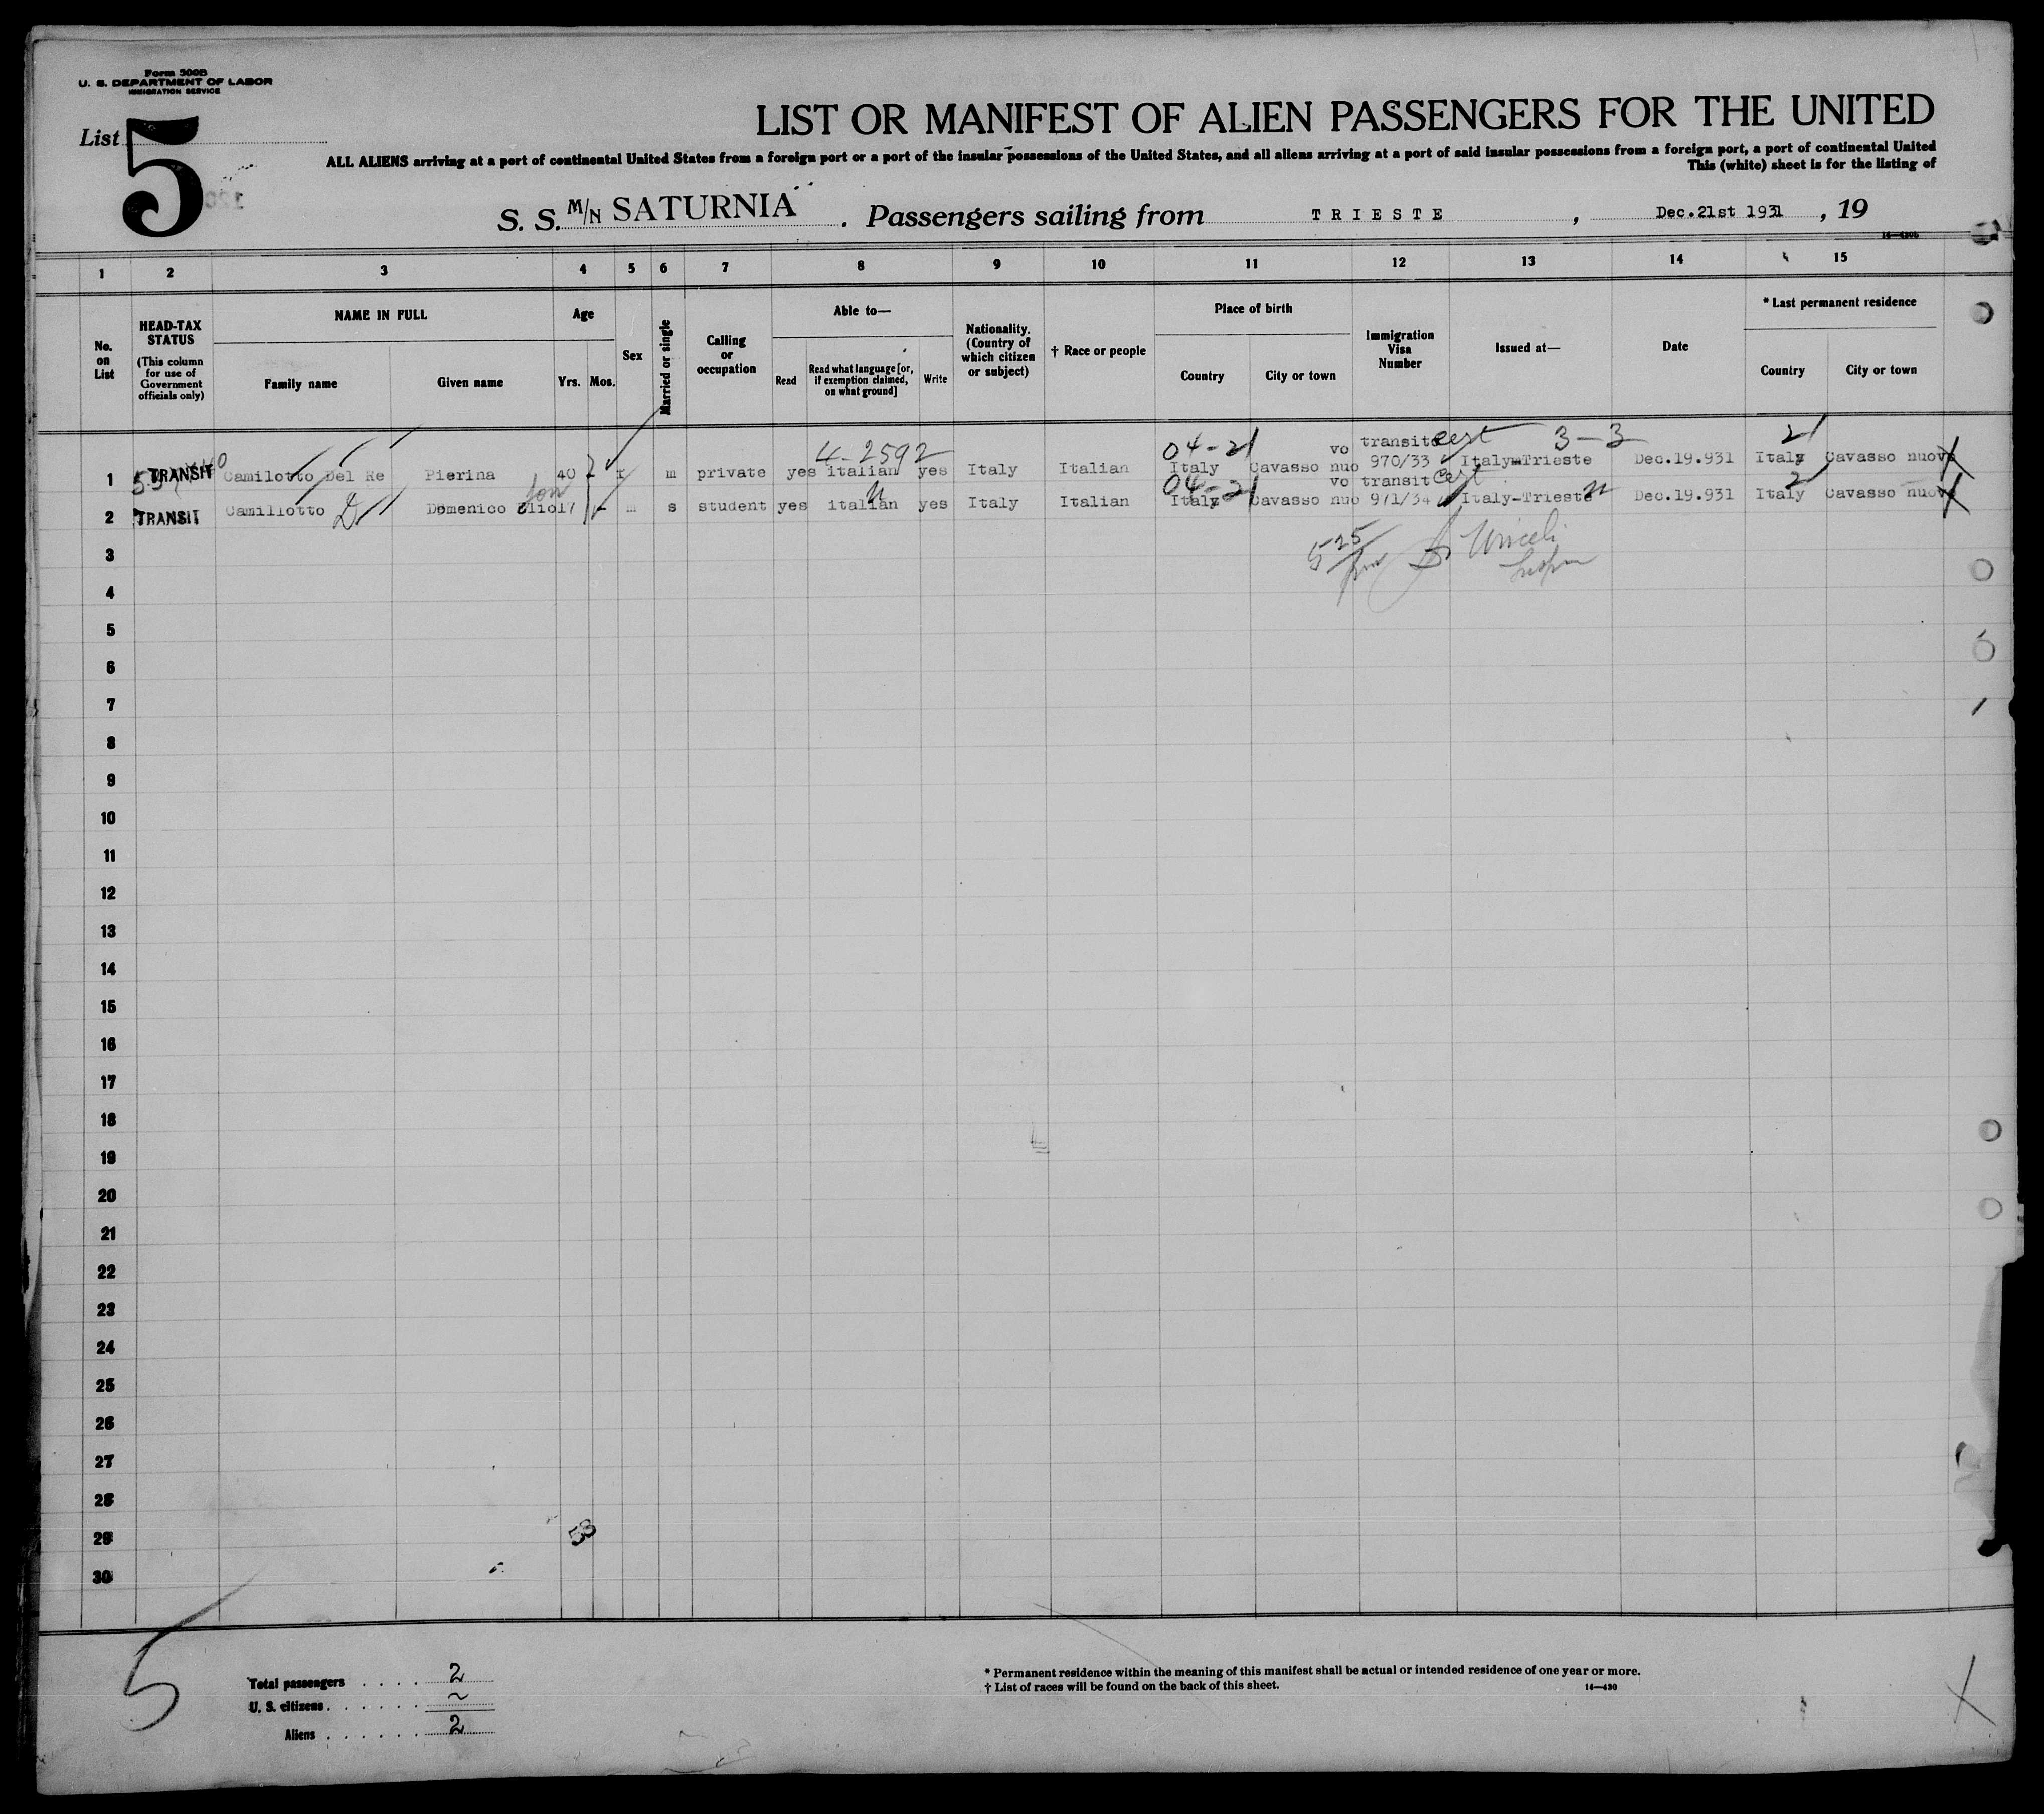 Form 500B
U. S. DEPARTMENT OF LABOR
IMMIGRATION SERVICE
List 5
LIST OR MANIFEST OF ALIEN PASSENGERS FOR THE UNITED
ALL ALIENS arriving at a port of continental United States from a foreign port or a port of the insular possessions of the United States, and all aliens arriving at a port of said insular possessions from a foreign port, a port of continental United
This (white) sheet is for the listing of
S. S. M/N SATURNIA . Passengers sailing from TRIESTE , Dec.21st 1931 , 19
1 2 3 4 5 6 7 8 9 10 11 12 13 14 15
No. on List
HEAD-TAX STATUS (This column for use of Government officials only)
NAME IN FULL
Family name Given name
Age
Yrs. Mos.
Sex
Married or single
Calling or occupation
Able to—
Read Read what language [or, if exemption claimed, on what ground] Write
Nationality. (Country of which citizen or subject)
† Race or people
Place of birth
Country City or town
Immigration Visa Number
Issued at—
Date
* Last permanent residence
Country City or town
4-2592 04-21 vo transito cert 3-3 2
1 TRANSIT Camilotto Del Re Pierina 40 m private yes italian yes Italy Italian Italy Cavasso nuo 970/33 Italy-Trieste Dec.19.931 Italy Cavasso nuovo
son 04-21 vo transit cert 2
2 TRANSIT Camillotto D Domenico Elio 17 m s student yes italian yes Italy Italian Italy Cavasso nuo 971/34 Italy-Trieste Dec.19.931 Italy Cavasso nuovo
3 5 25 pm
4
5
6
7
8
9
10
11
12
13
14
15
16
17
18
19
20
21
22
23
24
25
26
27
28
29
30
5
Total passengers . . . . 2
U. S. citizens . . . . . . ~
Aliens . . . . . . 2
* Permanent residence within the meaning of this manifest shall be actual or intended residence of one year or more.
† List of races will be found on the back of this sheet.
14—430